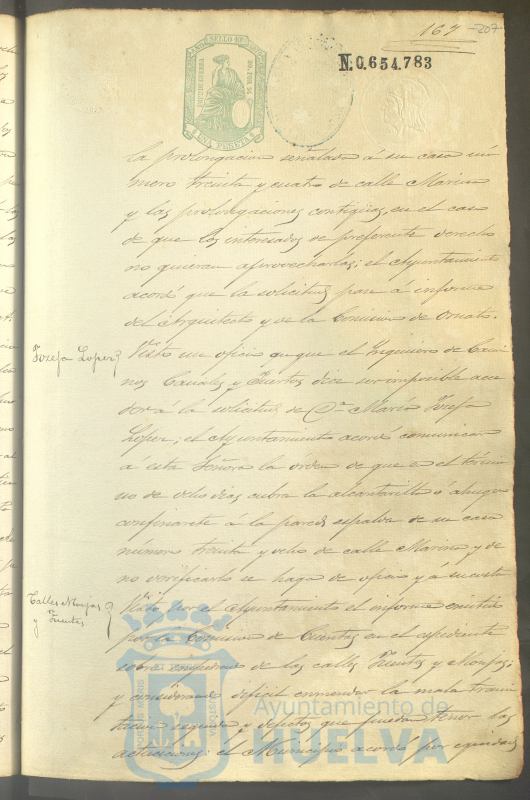 167 207
N.0.654.783
SELLO 10º
UNA PESETA
la prolongacion señalada á su casa nú
mero treinta y cuatro de calle Marina
y las prolongaciones contiguas, en el caso
de que los interesados de preferente derecho
no quieran aprovecharlas; el Ayuntamiento
acordó que la solicitud pase á informe
del Arquitecto y de la Comision de Ornato.
Josefa Lopez
Visto un oficio en que el Ingeniero de Cami
nos Canales y Puertos dice ser imposible acce
der á la solicitud de Dª Maria Josefa
Lopez; el Ayuntamiento acordó comunicar
á esta Señora la orden de que en el térmi
no de ocho dias cubra la alcantarilla ó
confinante á la pared espalda de su casa
número treinta y ocho de calle Marina y de
no verificarlo se haga de oficio y á su costa
Calles Monjas
y Fuentes
Visto por el Ayuntamiento el informe emitido
por la Comision de Cuentas en el espediente
sobre de las calles Fuentes y Monjas;
y considerando dificil enmendar la mala trami
tacion seguida y defectos que puedan tener las
actuaciones: el Municipio acordó por equidad
Ayuntamiento de
HUELVA